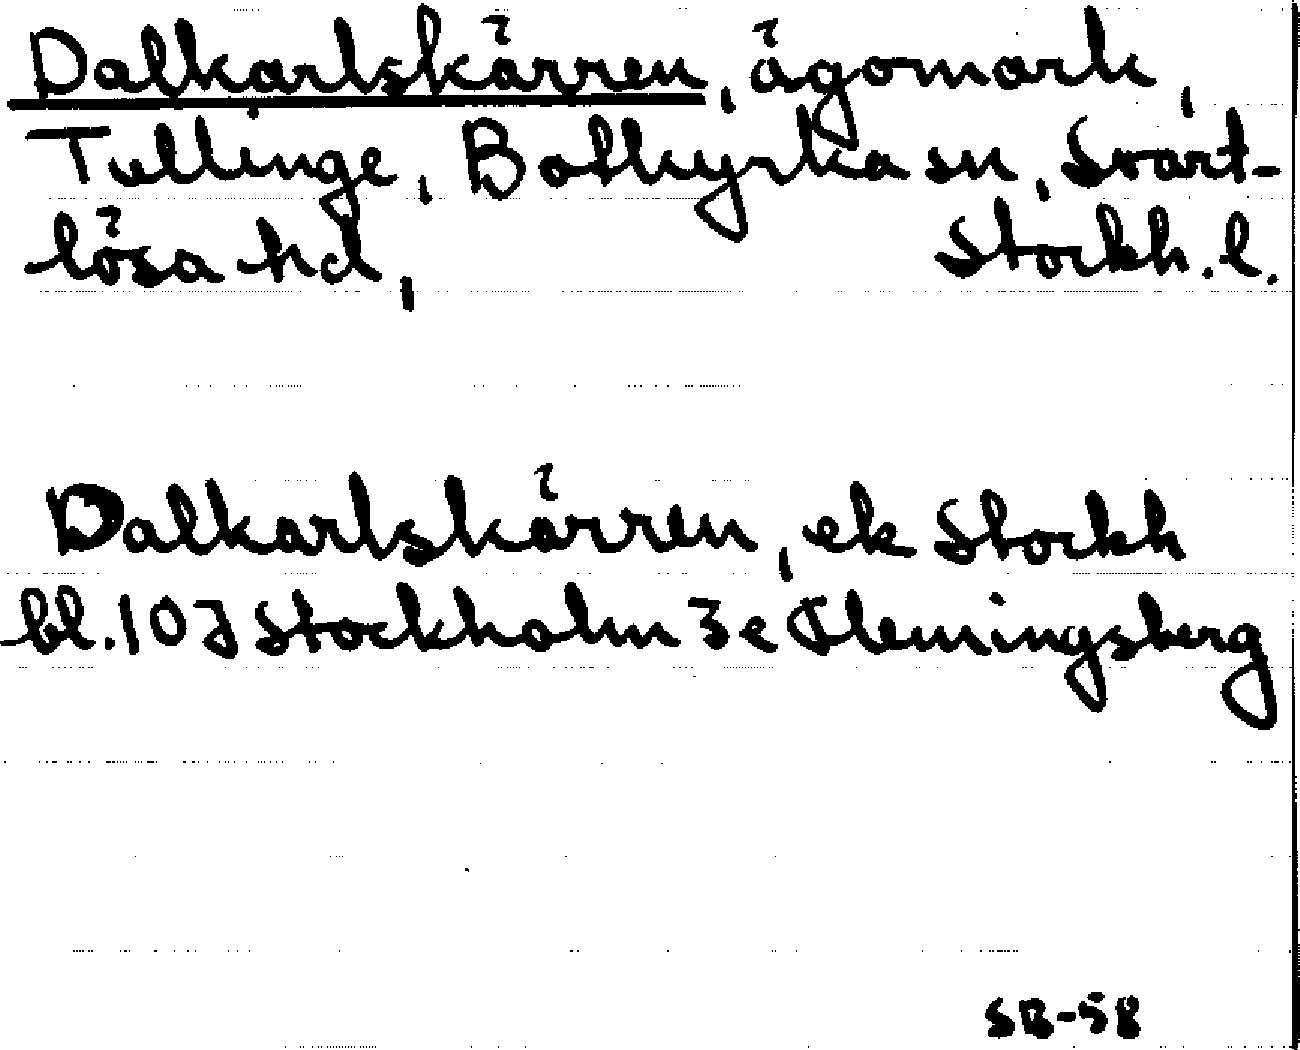 Dalkarlskärren, ägomark,
Tullinge, Bothyrka sn, Svart-
lösa hd, Stockh. l.
Dalkarlskärren, ek Stockh
bl. 10 J Stockholm 3e Flemingsberg
SB-58